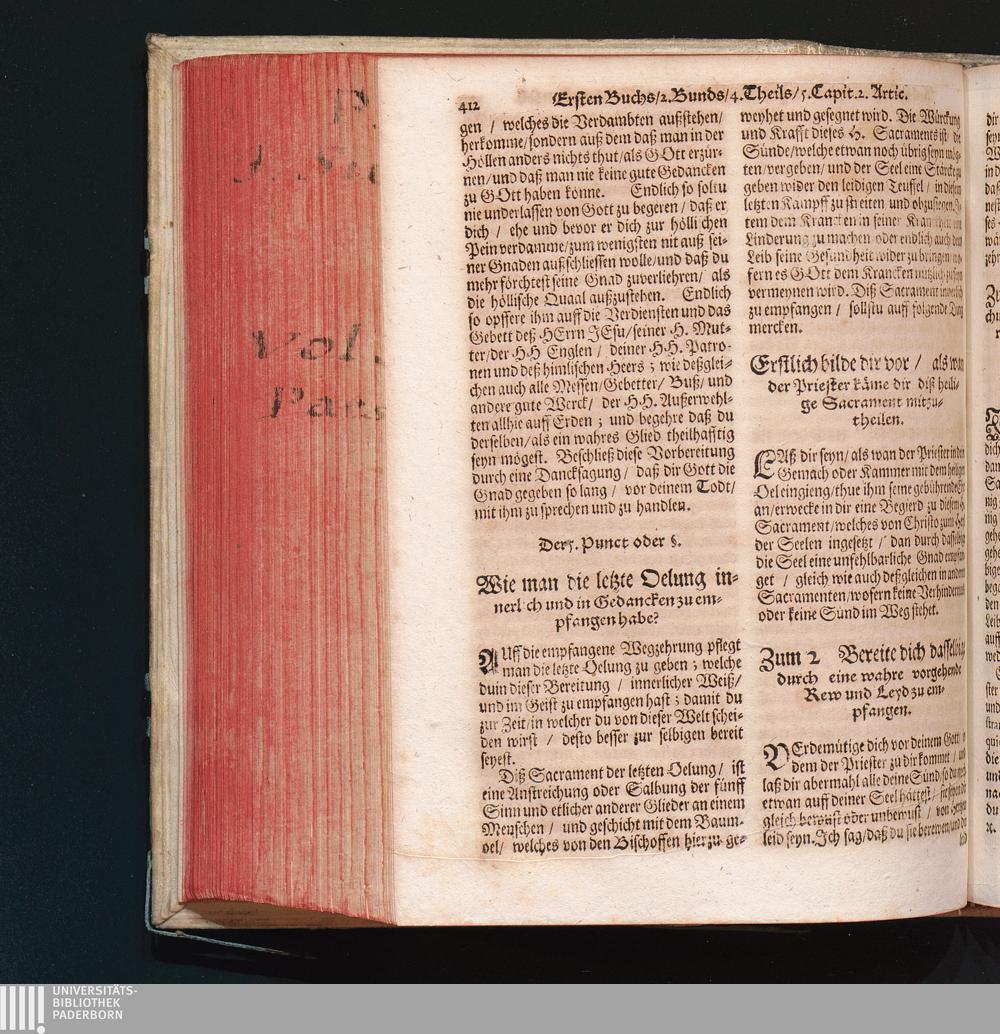 412
Ersten Buchs/2. Bunds/4. Theils/5. Capit. 2. Artic.
gen / welches die Verdambten außstehen/
herkomme/sondern auß dem daß man in der
Höllen anders nichts thut/als GOtt erzür-
nen/und daß man nie keine gute Gedancken
zu GOtt haben könne. Endlich so soltu
nie underlassen von Gott zu begeren / daß er
dich / ehe und bevor er dich zur höllischen
Pein verdamme/zum wenigsten nit auß sei-
ner Gnaden außschliessen wolle/und daß du
mehr förchtest seine Gnad zuverliehren/ als
die höllische Quaal außzustehen. Endlich
so opffere ihm auff die Verdiensten und das
Gebett deß HErrn JEsu/seiner H. Mut-
ter/der HH Englen / deiner HH. Patro-
nen und deß himlischen Heers ; wie deßglei-
chen auch alle Messen/Gebetter/ Buß/ und
andere gute Werck/ der HH. Außerwehl-
ten allhie auff Erden ; und begehre daß du
derselben/als ein wahres Glied theilhafftig
seyn mögest. Beschließ diese Vorbereitung
durch eine Dancksagung/ daß dir Gott die
Gnad gegeben so lang / vor deinem Todt/
mit ihm zu sprechen und zu handlen.
Der 5. Punct oder §.
Wie man die letzte Oelung in-
nerlich und in Gedancken zu em-
pfangen habe?
AUff die empfangene Wegzehrung pflegt
man die letzte Oelung zu geben ; welche
du in dieser Bereitung / innerlicher Weiß/
und im Geist zu empfangen hast ; damit du
zur Zeit/in welcher du von dieser Welt schei-
den wirst / desto besser zur selbigen bereit
seyest.
Diß Sacrament der letzten Oelung/ ist
eine Anstreichung oder Salbung der fünff
Sinn und etlicher anderer Glieder an einem
Menschen / und geschicht mit dem Baum-
oel/ welches von den Bischoffen hierzu ge-
weyhet und gesegnet wird. Die Würckung
und Krafft dieses H. Sacraments ist/ die
Sünde/welche etwan noch übrig seyn mög-
ten/vergeben/ und der Seel eine Stärcke zu
geben wider den leidigen Teuffel / in diesem
letzten Kampff zu streiten und obzusiegen. J-
tem dem Krancken in seiner
Linderung zu machen oder endlich auch dem
Leib seine Gesundheit wider zu bringen
fern es GOtt dem Krancken nützlich
vermeynen wird. Diß Sacrament
zu empfangen / sollstu auff folgende Ding
mercken.
Erstlich bilde dir vor / als wan
der Priester käme dir diß heili-
ge Sacrament mitzu-
theilen.
LAß dir seyn/ als wan der Priester in dein
Gemach oder Kammer mit dem heiligen
Oel eingieng/thue ihm seine gebührende
an/erwecke in dir eine Begierd zu diesem H.
Sacrament/welches von Christo zum
der Seelen ingesetzt / dan durch dasselbig
die Seel eine unfehlbarliche Gnad empfan-
get / gleich wie auch deßgleichen in andern
Sacramenten/wofern keine Verhindernuß
oder keine Sünd im Weg stehet.
Zum 2 Bereite dich dasselbig
durch eine wahre vorgehende
Rew und Leyd zu em-
pfangen.
VErdemütige dich vor deinem Gott/
dem der Priester zu dir kommet /
laß dir abermahl alle deine Sünd/so du noch
etwan auff deiner Seel hättest /
gleich bewust oder unbewust / von Hertzen
leid seyn. Ich sag/daß du sie berewen/und
P.
Vol.
Pars
UNIVERSITÄTS-
BIBLIOTHEK
PADERBORN